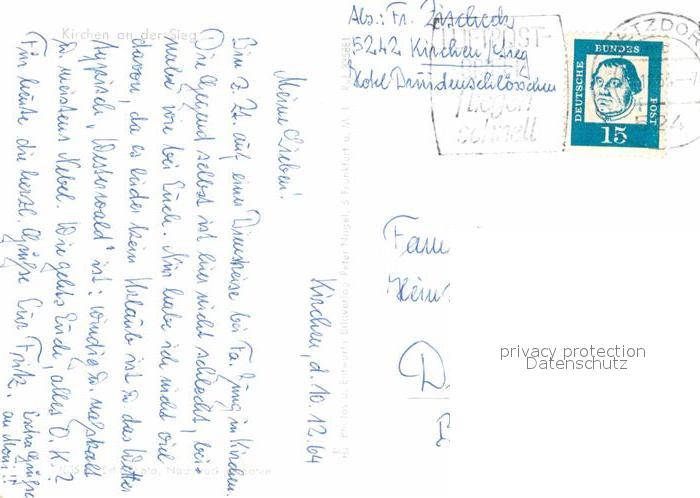 Kirchen an der Sieg
Abs.: Fr. Zischeck
5242 Kirchen/Sieg
Hotel Druidenschlösschen
LUFTPOST-
fliegen
schnell
BETZDORF
524
DEUTSCHE
BUNDES
POST
15
Kirchen, d. 10.12.64
Meine Lieben!
Bin z. Zt. auf einer Dienstreise bei Fa. Jung in Kirchen.
Die Gegend selbst ist hier nicht schlecht, bei-
nahe wie bei Euch. Nur habe ich nicht viel
davon, da es leider kein Urlaub ist u. das Wetter
typisch "Westerwald" ist: windig u. nasskalt
u. meistens Nebel. Wie gehts Euch, alles O.K.?
Für heute die herzl. Grüße Eur Fritz.
Extra Grüße
an Moni!!
Photos u. Entwurf: Bildverlag Peter Nagel, 6 Frankfurt
Fam
Hein
D
privacy protection
Datenschutz